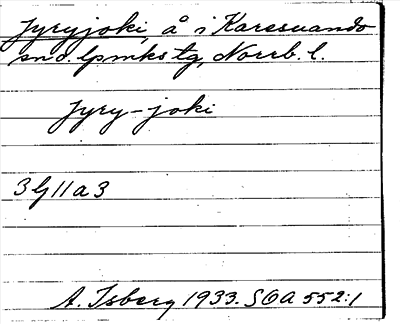 Jyryjoki, å i Karesuando
sn o. lpmks tg, Norrb. l.
Jyry-joki
3 G 11 a 3
A. Isberg 1933. SOA 552:1